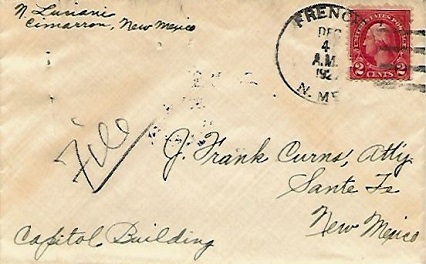 N. Lusiani
Cimarron, New Mexico
FRENCH
DEC
4
A.M.
192
N. MEX
UNITED STATES POSTAGE
2 CENTS 2
File
J. Frank Curns, Atty.
Santa Fe
New Mexico
Capitol Building